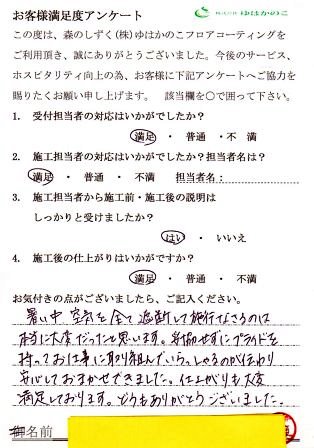 お客様満足度アンケート
株式会社 ゆはかのこ
この度は、森のしずく(株)ゆはかのこフロアコーティングを
ご利用頂き、誠にありがとうございました。今後のサービス、
ホスピタリティ向上の為、お客様に下記アンケートへご協力を
賜りたくお願い申し上げます。 該当欄を○で囲って下さい。
1. 受付担当者の対応はいかがでしたか?
満足 ・ 普通 ・不 満
2. 施工担当者の対応はいかがでしたか?担当者名は?
満足 ・ 普通 ・ 不 満 担当者名:
3. 施工担当者から施工前・施工後の説明は
しっかりと受けましたか?
はい ・ いいえ
4. 施工後の仕上がりはいかがですか?
満足 ・ 普通 ・ 不 満
お気付きの点がございましたら、ご記入ください。
暑い中、空気を全て遮断して施行なさるのは
本当に大変だったと思います。妥協せずにプライドを
持ってお仕事に取り組んでいらっしゃるのが伝わり
安心しておまかせできました。仕上がりも大変
満足しております。どうもありがとうございました。
御名前